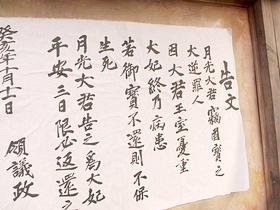 告文
月光大君竊國寶之
大逆罪人
因大君王室憂重
大妃終乃病患
若御寶不還則不保
生死
月光大君告之爲大妃
平安三日限必返還之
領議政
癸亥年十月十一日